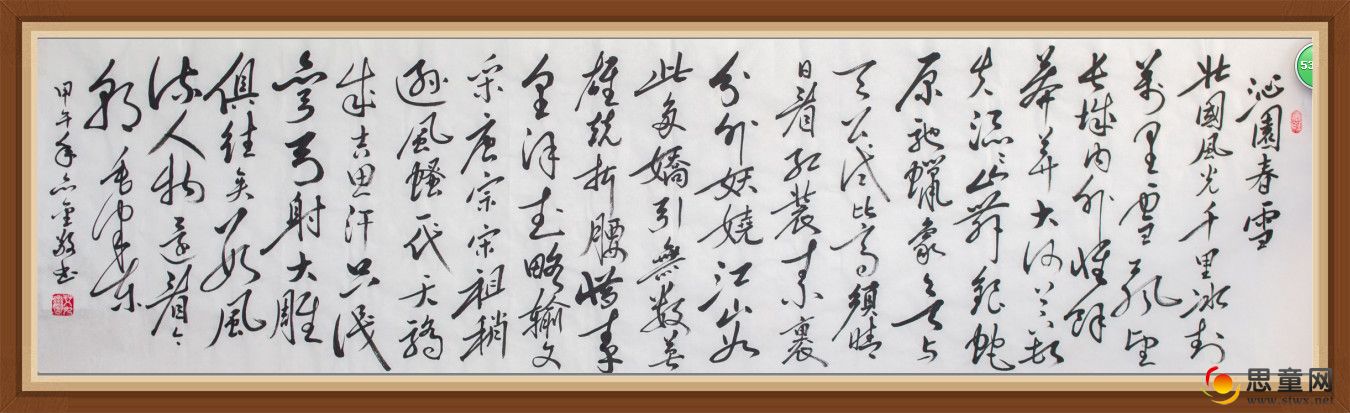 沁園春雪
北國風光千里冰封
萬里雪飄望
長城内外惟餘
莽莽大河上下頓
失滔滔山舞銀蛇
原馳蠟象欲与
天公试比高須晴
日看红裝素裹
分外妖嬈江山如
此多嬌引無數英
雄競折腰惜秦
皇漢武略輸文
采唐宗宋祖稍
遜風騷一代天驕
成吉思汗只識
彎弓射大雕
俱往矣數風
流人物還看今
朝毛泽东
甲午年书
53
思童网
www.stwx.net